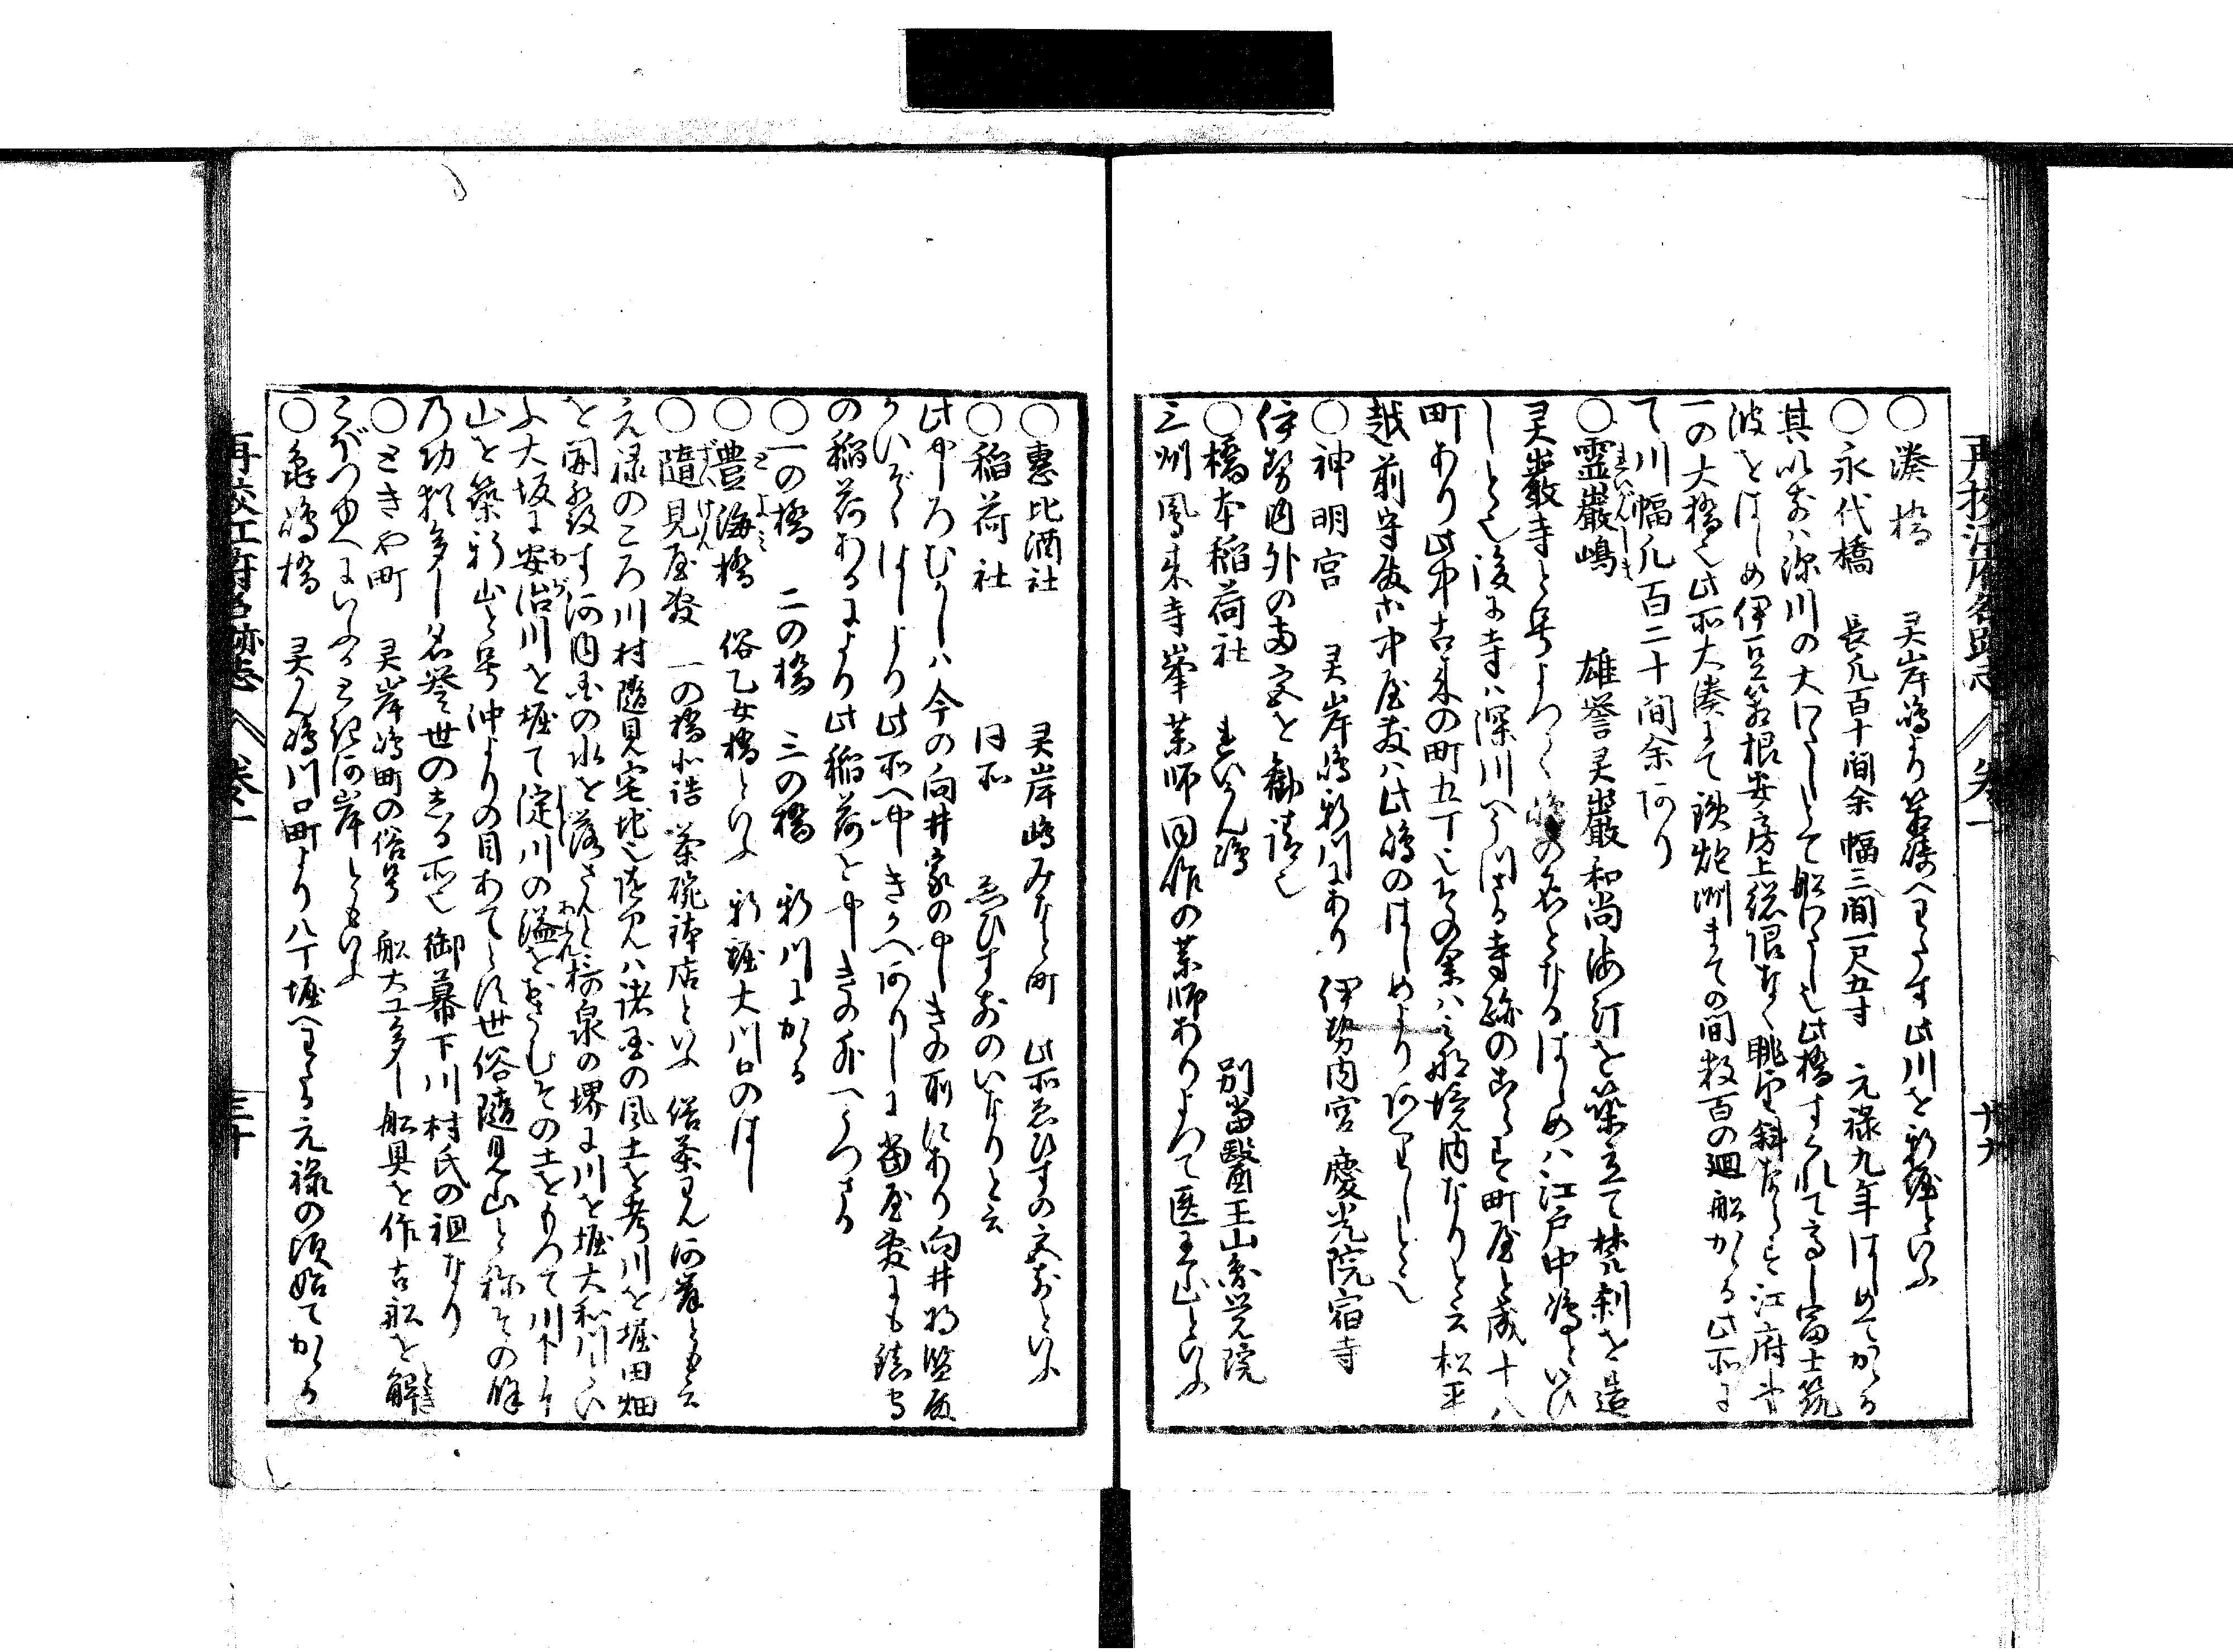 再校江府名跡志 巻一 廿九
○湊橋 灵岸嶋より箱崎へわたす此川を新堀といふ
○永代橋 長凡百十間余幅三間一尺五寸 元禄九年はしめてかゝる
其以前ハ深川の大わたしとて船わたし也此橋すくれて高し富士筑
波をはしめ伊豆箱根安房上総限なく眺望斜ならす江府中
一の大橋也此所大湊にて鉄炮洲まての間数百の廻船かゝる此所に
て川幅凡百二十間余あり
○霊巌嶋 雄誉灵巌和尚海辺を築立て梵刹を造
灵巌寺と号よつて嶋の名となるはしめハ江戸中嶋といひ
しとそ後に寺ハ深川へうつる寺跡のこらす町屋と成十八
町あり此中古来の町五丁也其余ハ境内なりと云松平
越前守殿中屋敷ハ此嶋のはしめより
○神明宮 灵岸嶋新川にあり 伊勢内宮慶光院宿寺
伊勢内外の両宮を勧請也
○橋本稲荷社 れいかん嶋 別当醫王山 院
三州鳳来寺峯薬師同作の薬師ありよつて医王山といふ
○惠比酒社 灵岸嶋みなと町 此所ゑひすの宮前といふ
○稲荷社 同所 ゑひす前のいなりと云
此やしろむかしハ今の向井家のやしきの前にあり向井将監殿
かいぞくはしより此所へやしきかへありしに当屋敷にも鎮守
の稲荷あるにより此稲荷をやしきの外へうつさる
○一の橋 二の橋 三の橋 新川にかゝる
○豊海橋 俗乙女橋といふ 新堀大川口のはし
○隨見屋敷 一の橋北詰 茶碗鉢店といふ 俗茶わん河岸とも云
元禄のころ川村隨見宅地也随見ハ諸国の風土を考川を堀田畑
を開発す河内国の水を落さんと和泉の堺に川を堀大和川といふ
大坂に安治川を堀て淀川の溢をおさむその土をもつて川下に
山を築新山と号沖よりの目あてとす世俗隨見山と称その外
乃功猶多し名誉世のしる所也御幕下川村氏の祖なり
○ときや町 灵岸嶋町の俗号 船大工多し船具を作古船を解
こぼつゆへにいふ 河岸ともいふ
○亀嶋橋 灵かん嶋川口町より八丁堀へわたる元禄の頃始てかゝる
再校江府名跡志 巻一 三十